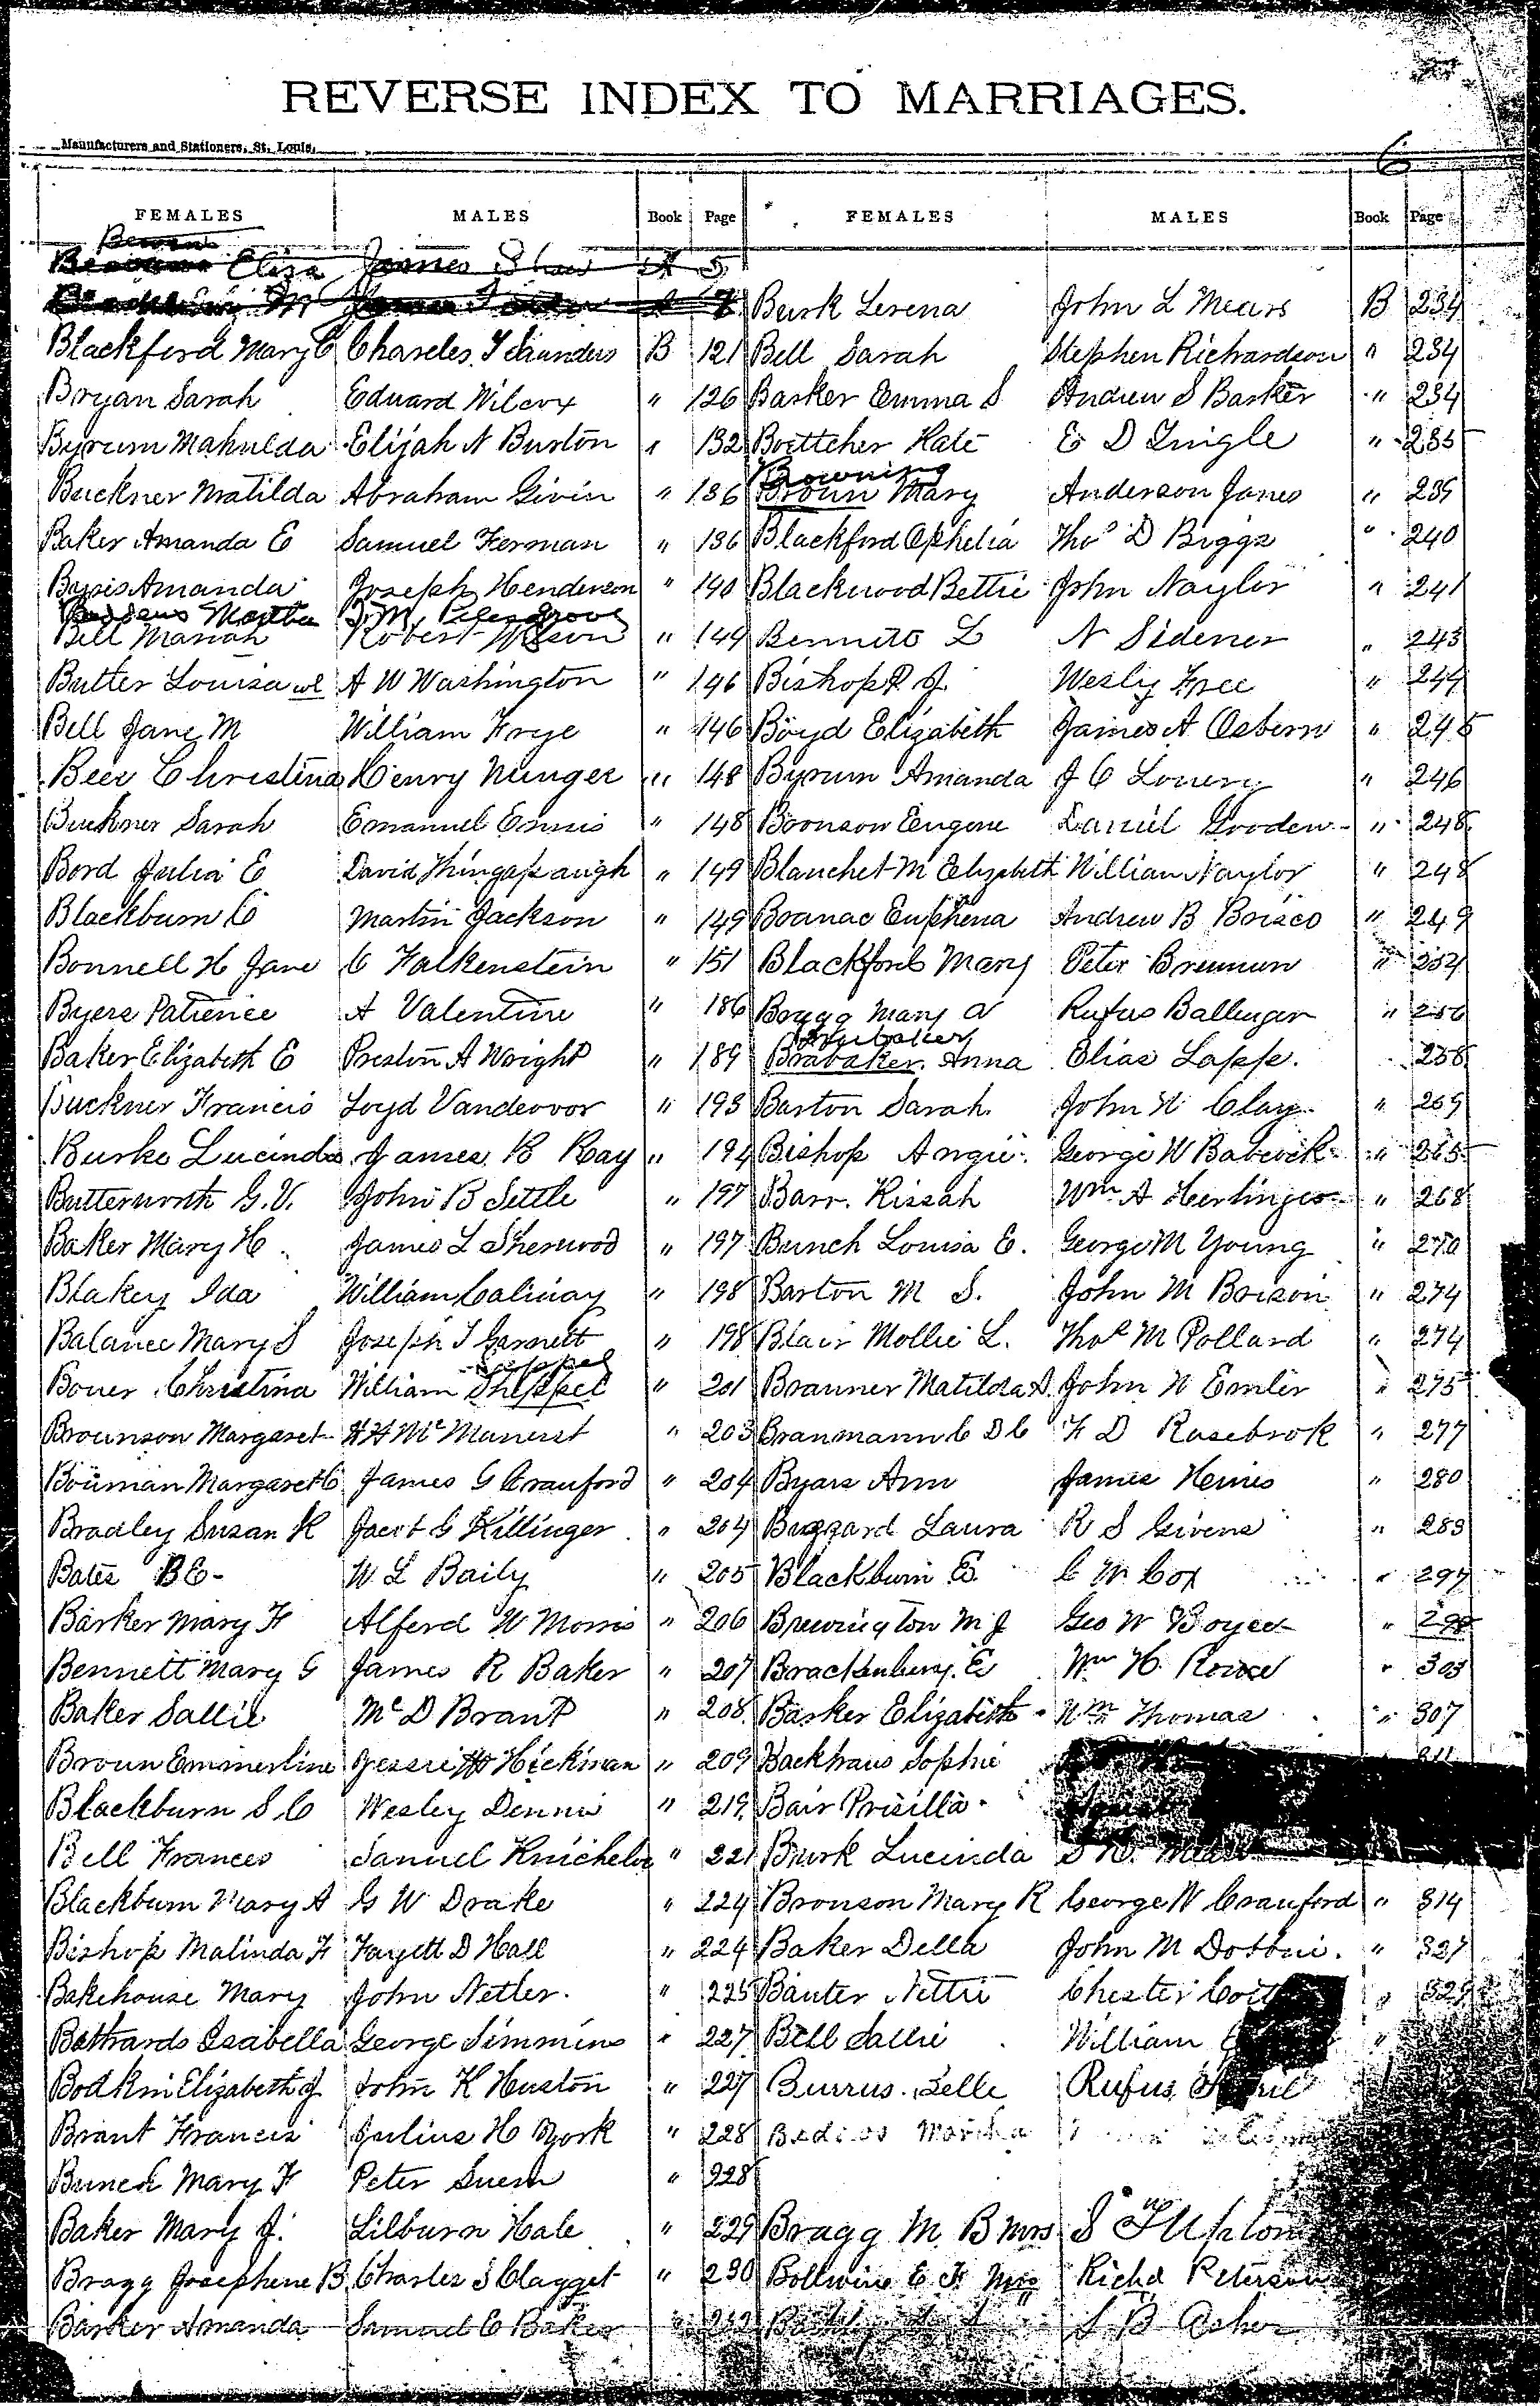 REVERSE INDEX TO MARRIAGES.
Manufacturers and Stationers, St. Louis,
6
FEMALES MALES Book Page FEMALES MALES Book Page
Eliza James Shaw A 5
Burk Lerena John L Mears B 234
Blackford Mary C Charles T Saunders B 121 Bell Sarah Stephen Richardson " 234
Bryan Sarah Edward Wilcox " 126 Barker Emma S Andrew S Barker " 234
Byrum Mahulda Elijah N Burton " 132 Boettcher Kate E D Lingle " 235
Browning
Buckner Matilda Abraham Givin " 136 Broun Mary Anderson Jones " 239
Baker Amanda E Samuel Ferman " 136 Blackford Ophelia Thos D Biggs " 240
Amanda Joseph Henderson " 140 Blackwood Bettie John Naylor " 241
Martha
Bell Mariah Robert Wilson " 144 L N Sidener " 243
Butter Louisa A W Washington " 146 Bishop P J Wesly Free " 244
Bell Jane M William Frye " 146 Boyd Elizabeth James A Osborn " 245
Beer Christina Henry Munger " 148 Byrum Amanda J C Lowery " 246
Buckner Sarah Emanuel Ennis " 148 Boonson Eugene Daniel Gooden " 248
Bord Julia E David " 149 Blanchet M Elizabeth William Naylor " 248
Blackburn C Martin Jackson " 149 Euphena Andrew B Brisco " 249
Bonnell H Jane C Falkenstein " 151 Blackford Mary Peter "
Byers Patience A Valentine " 186 Bragg Mary A Rufus Ballenger "
Brubaker
Baker Elizabeth E Preston A Wright " 189 Brabaker Anna Elias Lapp. 258
Buckner Francis Loyd Vandevvor " 193 Barton Sarah John W Clay "
Burke Lucinda James B Ray " 194 Bishop Angie George W Babcock " 265
Butterworth G. V. John B Settle " 197 Barr Kissah Wm A Hertinger " 268
Baker Mary H James L Sherwood " 197 Bunch Louisa E. George M Young " 270
Blakey Ida William " 198 Barton M S. John M Brison " 274
Balance Mary S Joseph T Garnett " 198 Blair Mollie L. Thos M Pollard " 274
Bouer Christina William Shippel " 201 Branner Matilda A. John W Emler " 275
Brounson Margaret " 203 Branmann C D C F D Rosebrok " 277
Bouman Margaret C James G Crauford " 204 Byars Ann James " 280
Bradley Susan K Jacob G Killinger " 204 Buzzard Laura R S Givens " 283
Bates B E W. L Baily " 205 Blackburn E. C W Cox " 297
Barker Mary F Alferd W Morris " 206 Brewington M J Geo W Boyer " 298
Bennett Mary G James R Baker " 207 Brackenbury E Wm H. " 303
Baker Sallie McD Brant " 208 Barker Elizabeth Wm Thomas " 307
Broun Emmerline Jessie Hickman " 209 Backhaus Sophie
Blackburn S C Wesley Dennis " 219 Bair Prisilla
Bell Frances Samuel " 221 Burk Lucinda
Blackburn Mary A G W Drake " 224 Bronson Mary R George W Crauford " 314
Bishop Malinda F Fayett D Hall " 224 Baker Della John M " 327
Bakehouse Mary John Netler. " 225 Banter Nettie Chester
Bothards Isabella George Simmins " 227 Bell Sallie William
Bodkin Elizabeth J John K Huston " 227 Burrus Belle Rufus
Brant Francis Julius H York " 228 Martha
Bunch Mary F Peter " 228
Baker Mary J. Lilburn Hale " 229 Bragg M B Mrs S T Upton
Bragg Josephine B Charles S Clagget " 230 Bollwine E F Mrs Richd Peterson
Barker Amanda Samuel E Baker " 232 S B Asher